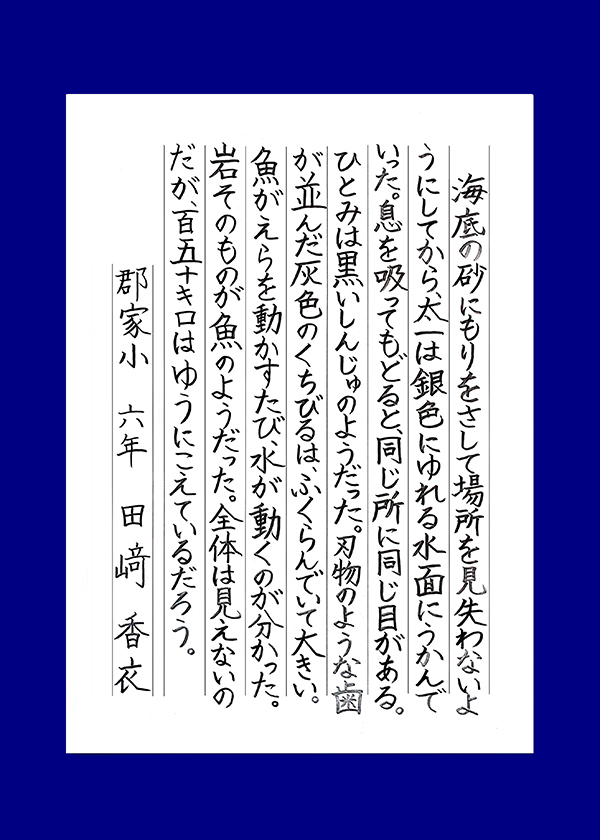 海底の砂にもりをさして場所を見失わないよ
うにしてから、太一は銀色にゆれる水面にうかんで
いった。息を吸ってもどると、同じ所に同じ目がある。
ひとみは黒いしんじゅのようだった。刃物のような歯
が並んだ灰色のくちびるは、ふくらんでいて大きい。
魚がえらを動かすたび、水が動くのが分かった。
岩そのものが魚のようだった。全体は見えないの
だが、百五十キロはゆうにこえているだろう。
郡家小 六年 田﨑 香衣